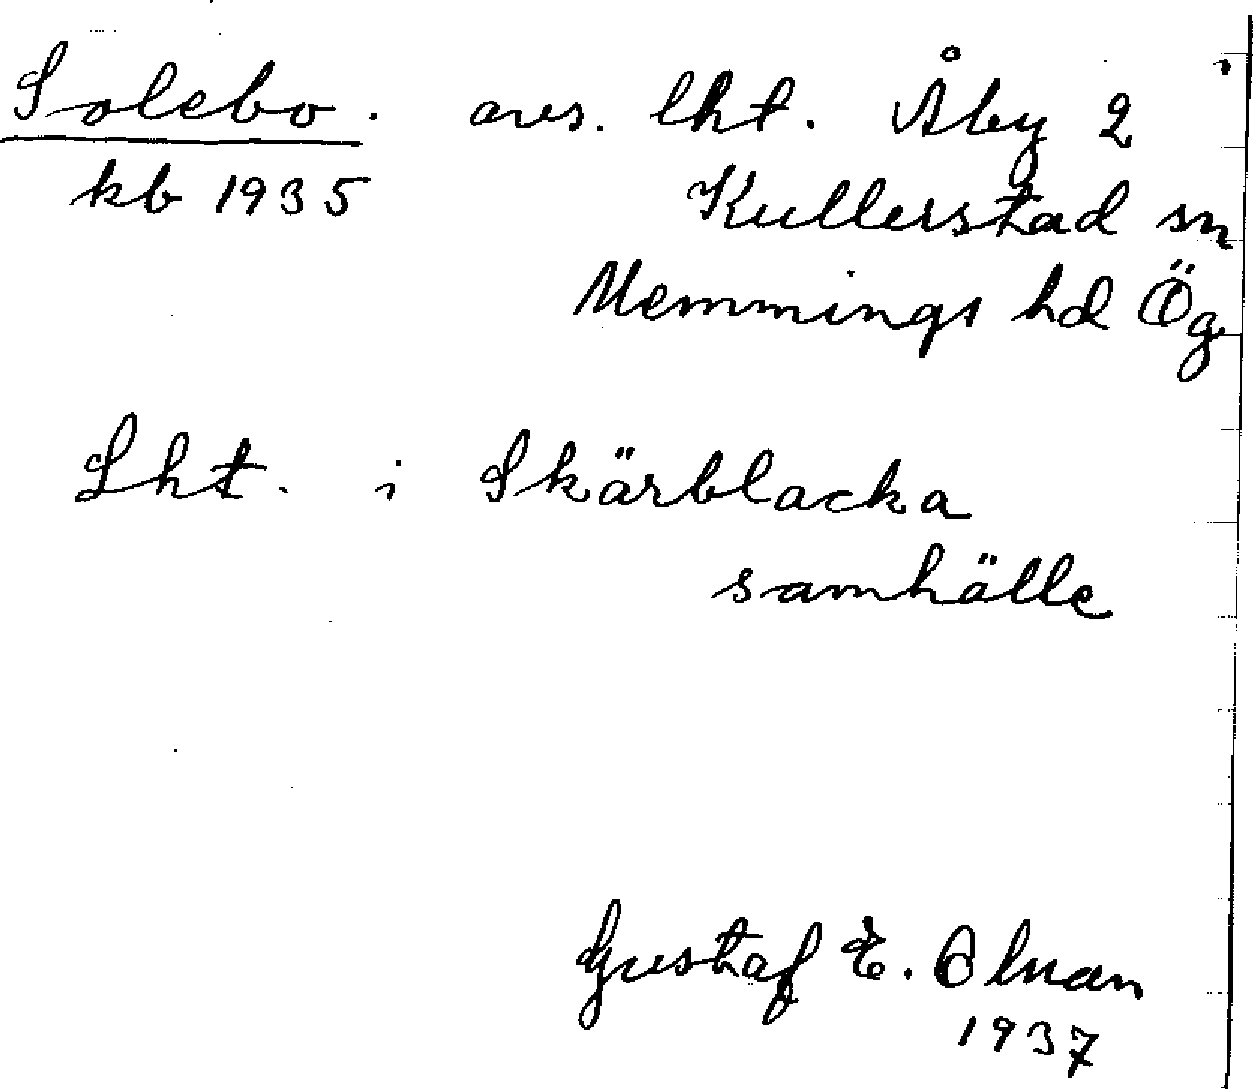 Solebo. avs. lht. Åby 2
kb 1935 Kullerstad sn
Memmings hd Ög
Lht. i Skärblacka
samhälle
Gustaf E. Olman
1937